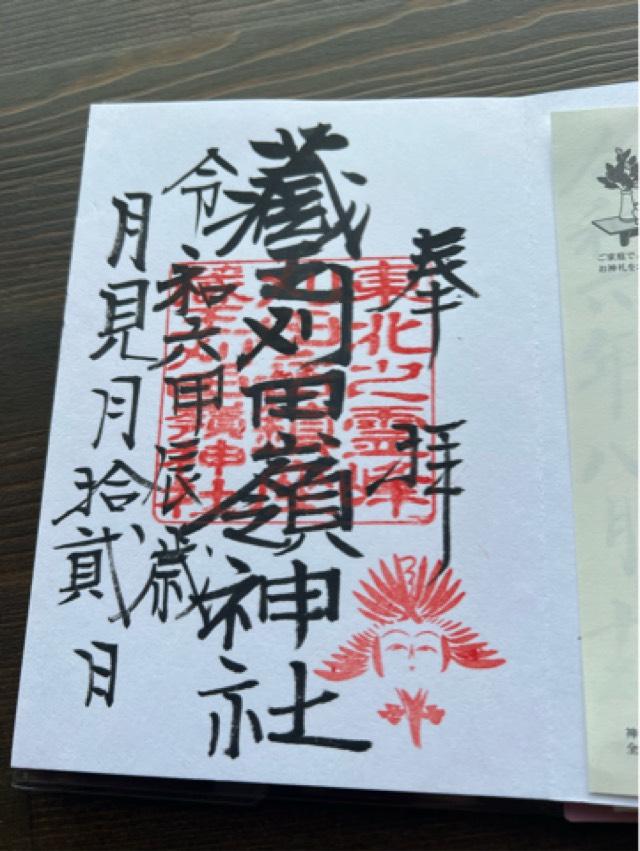 奉拝
藏王刈田嶺神社
令和六甲辰歳
月見月拾貳日
東北之霊峰
ご家庭で
お神札を